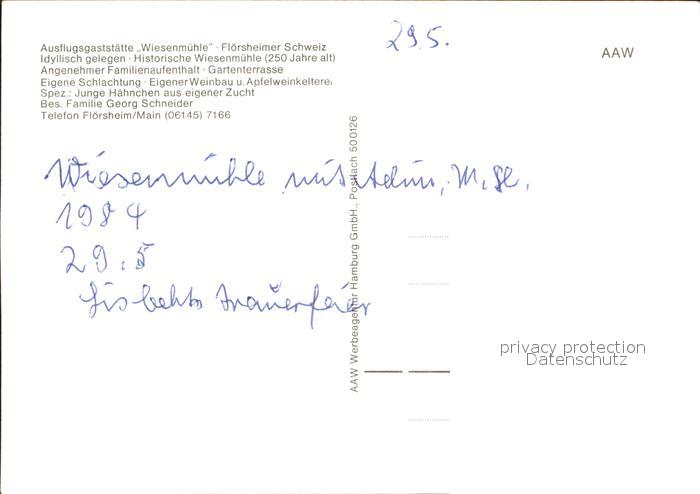 29.5.
AAW
Ausflugsgaststätte „Wiesenmühle" · Flörsheimer Schweiz
Idyllisch gelegen · Historische Wiesenmühle (250 Jahre alt)
Angenehmer Familienaufenthalt · Gartenterrasse
Eigene Schlachtung · Eigener Weinbau u. Apfelweinkelterei
Spez.: Junge Hähnchen aus eigener Zucht
Bes. Familie Georg Schneider
Telefon Flörsheim/Main (06145) 7166
Wiesenmühle mit
1984
29.5
Trauerfeier
AAW Werbeagentur Hamburg GmbH., Postfach 500126
privacy protection
Datenschutz